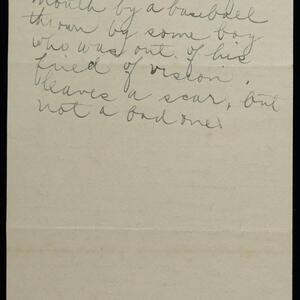 mouth by a baseball
thrown by some boy
who was out of his
field of vision.
leaves a scar, but
not a bad one.